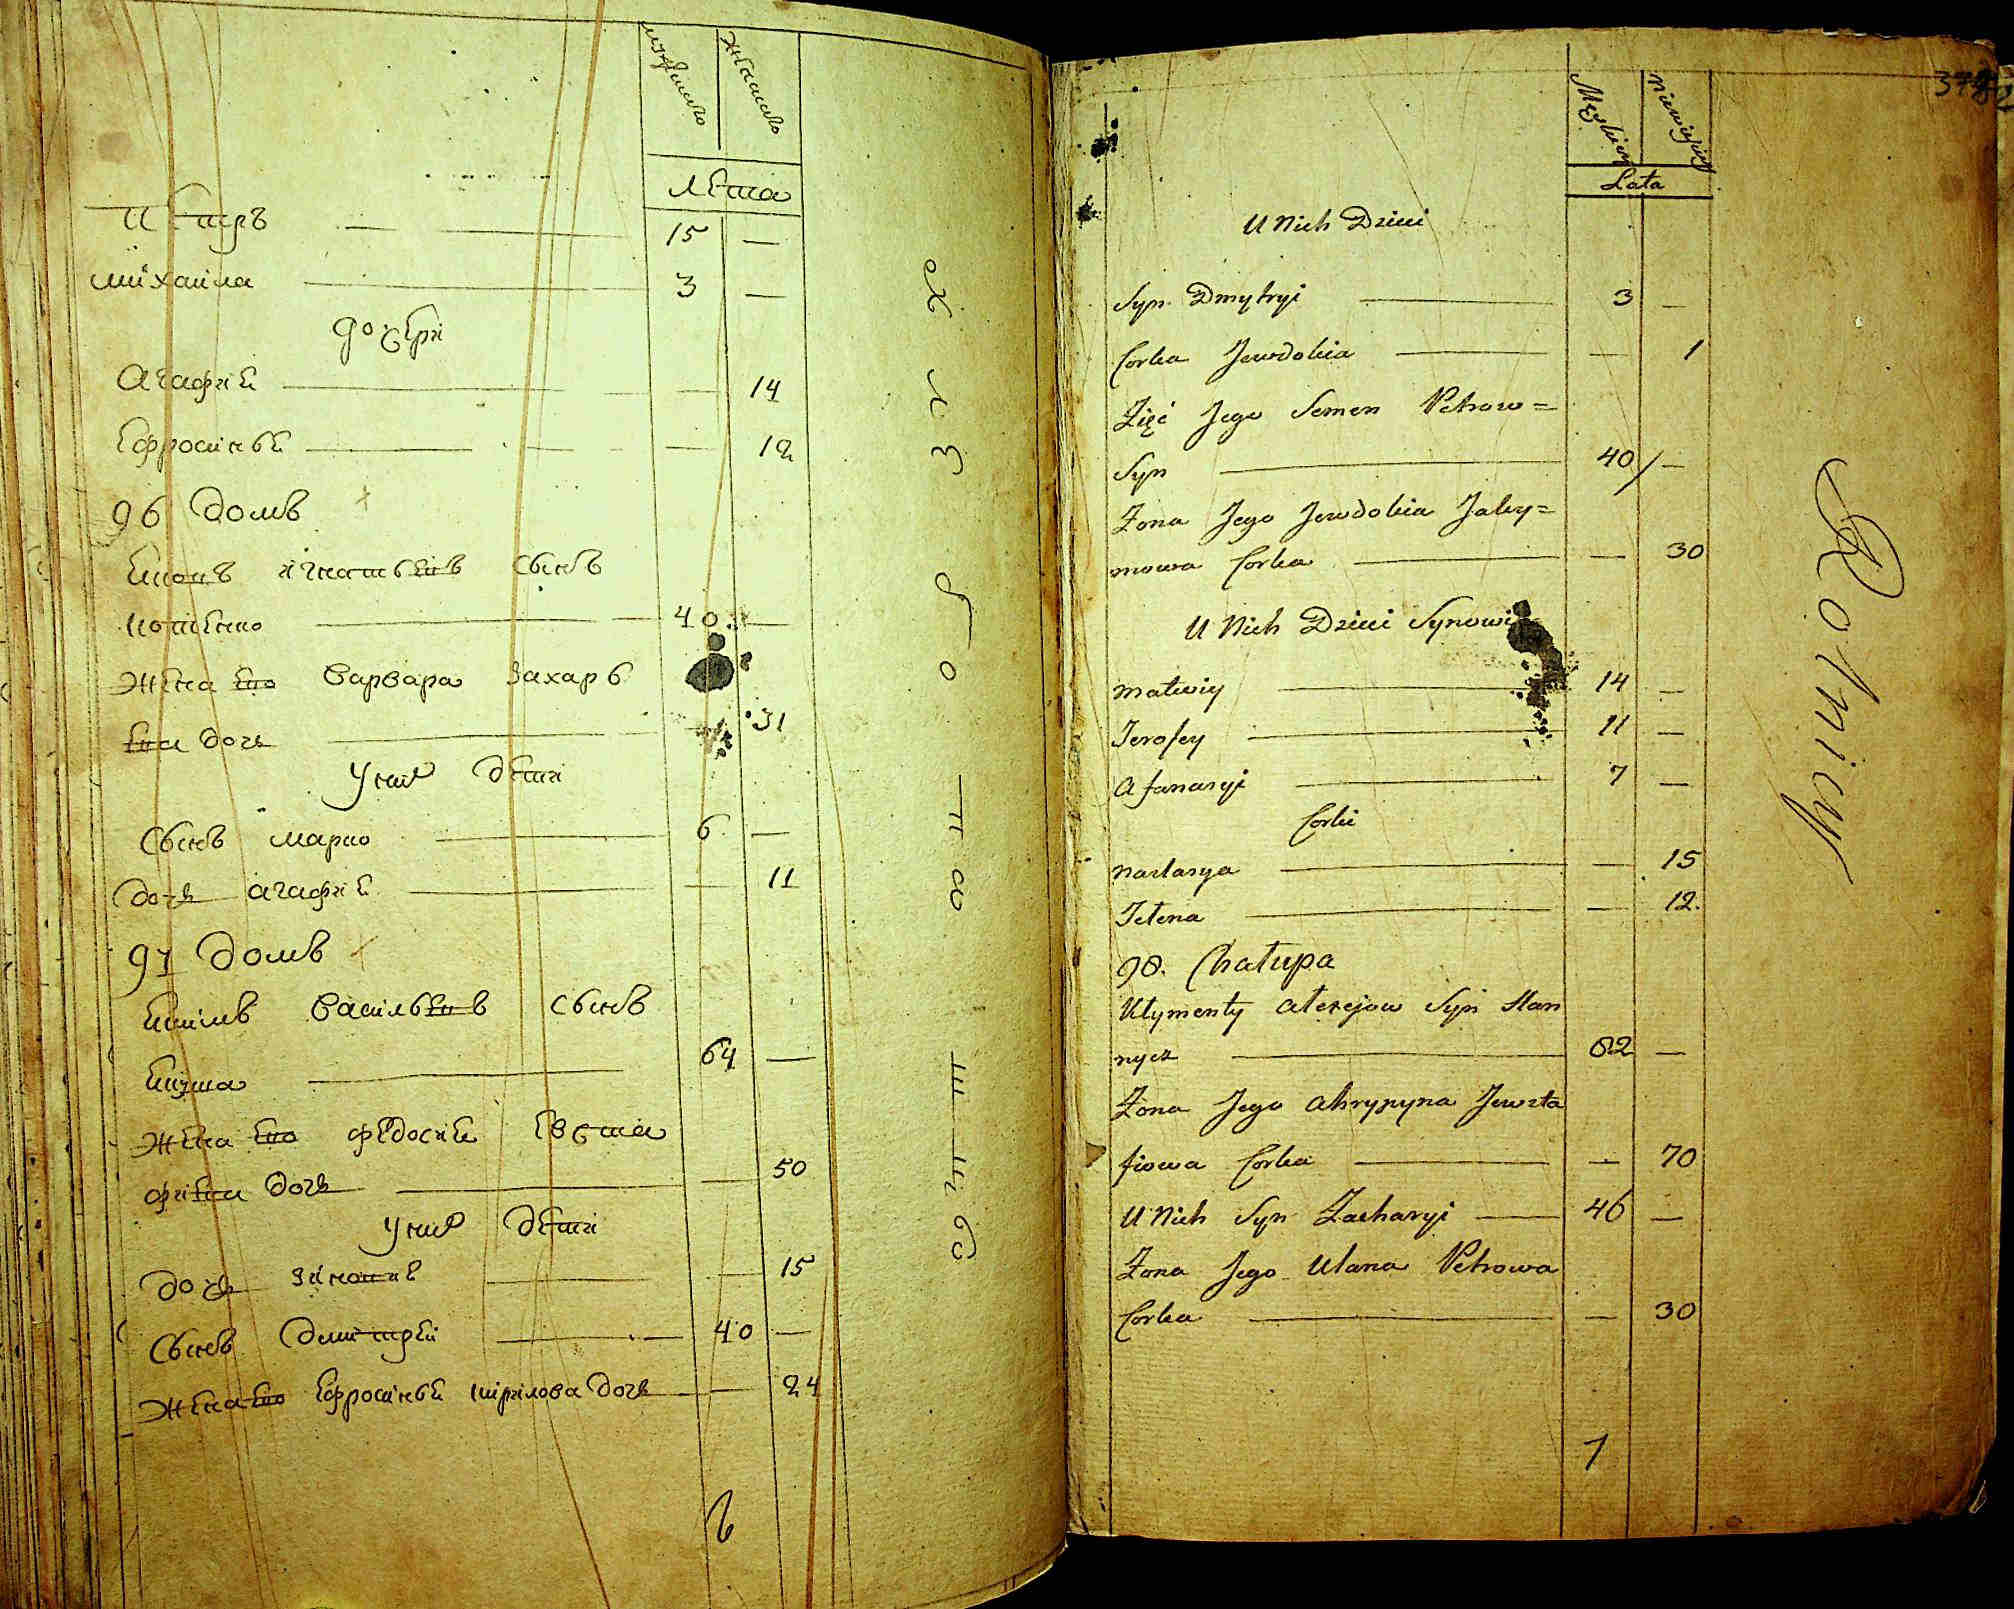 мужеска женска
лета
Петръ — 15 —
михайла — 3 —
дочери
агафіи — 14
Ефросиньи — 12
96 домъ
игнатьевъ сынъ
40. —
жена его варвара захарь
ева дочь — 31
у них дети
сынъ марко — 6 —
дочь агафіи — 11
97 домъ
васильевъ сынъ
64 —
жена его федосіи евста
фіева дочь — 50
у них дети
дочь — 15
сынъ дмитрей — 40 —
жена его Ефросиньи кирилова дочь — 24
6
Męskiey Niewieyskiey
Lata
U Nich Dzieci
Syn Dmytryi — 3 —
Corka Jewdokia — 1
Zięć Jego Semen Petrow=
Syn — 40 —
Zona Jego Jewdokia Jaky=
mowa Corka — 30
U Nich Dzieci Synowi
Matwiy — 14 —
Jerofey — 11 —
Afanasyi — 7 —
Corki
Nastasya — 15
Jełena — 12.
98. Chałupa
Kłymenty Alexejow Syn Stan
nycz — 62 —
Zona Jego Ahrypyna Jewsta
fiowa Corka — 70
U Nich Syn Zacharyi — 46 —
Zona Jego Ulana Petrowa
Corka — 30
7
Rolnicy